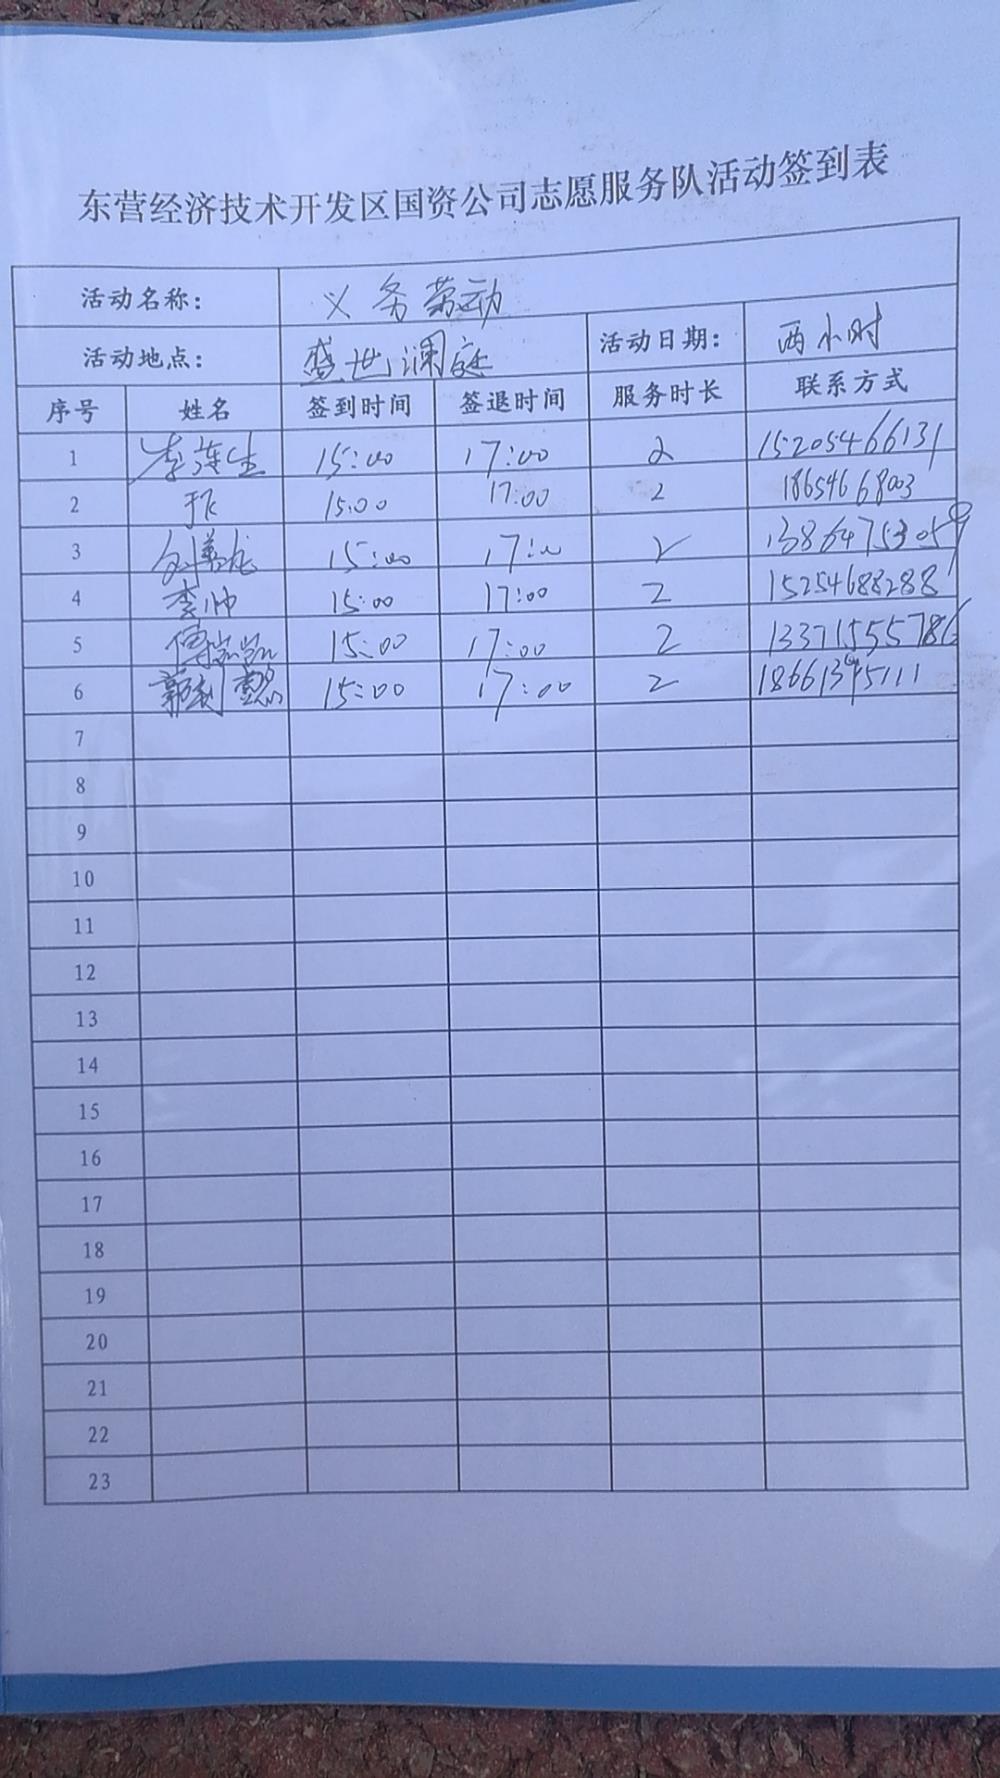 东营经济技术开发区国资公司志愿服务队活动签到表
活动名称： 义务劳动
活动地点： 盛世澜庭 活动日期： 两小时
序号 姓名 签到时间 签退时间 服务时长 联系方式
1 李莲生 15:00 17:00 2 15205466131
2 于飞 15:00 17:00 2 18654668003
3 15:00 17:00 2 13864753059
4 李帅 15:00 17:00 2 15254688288
5 傅 15:00 17:00 2 13371555786
6 郭 15:00 17:00 2
7
8
9
10
11
12
13
14
15
16
17
18
19
20
21
22
23